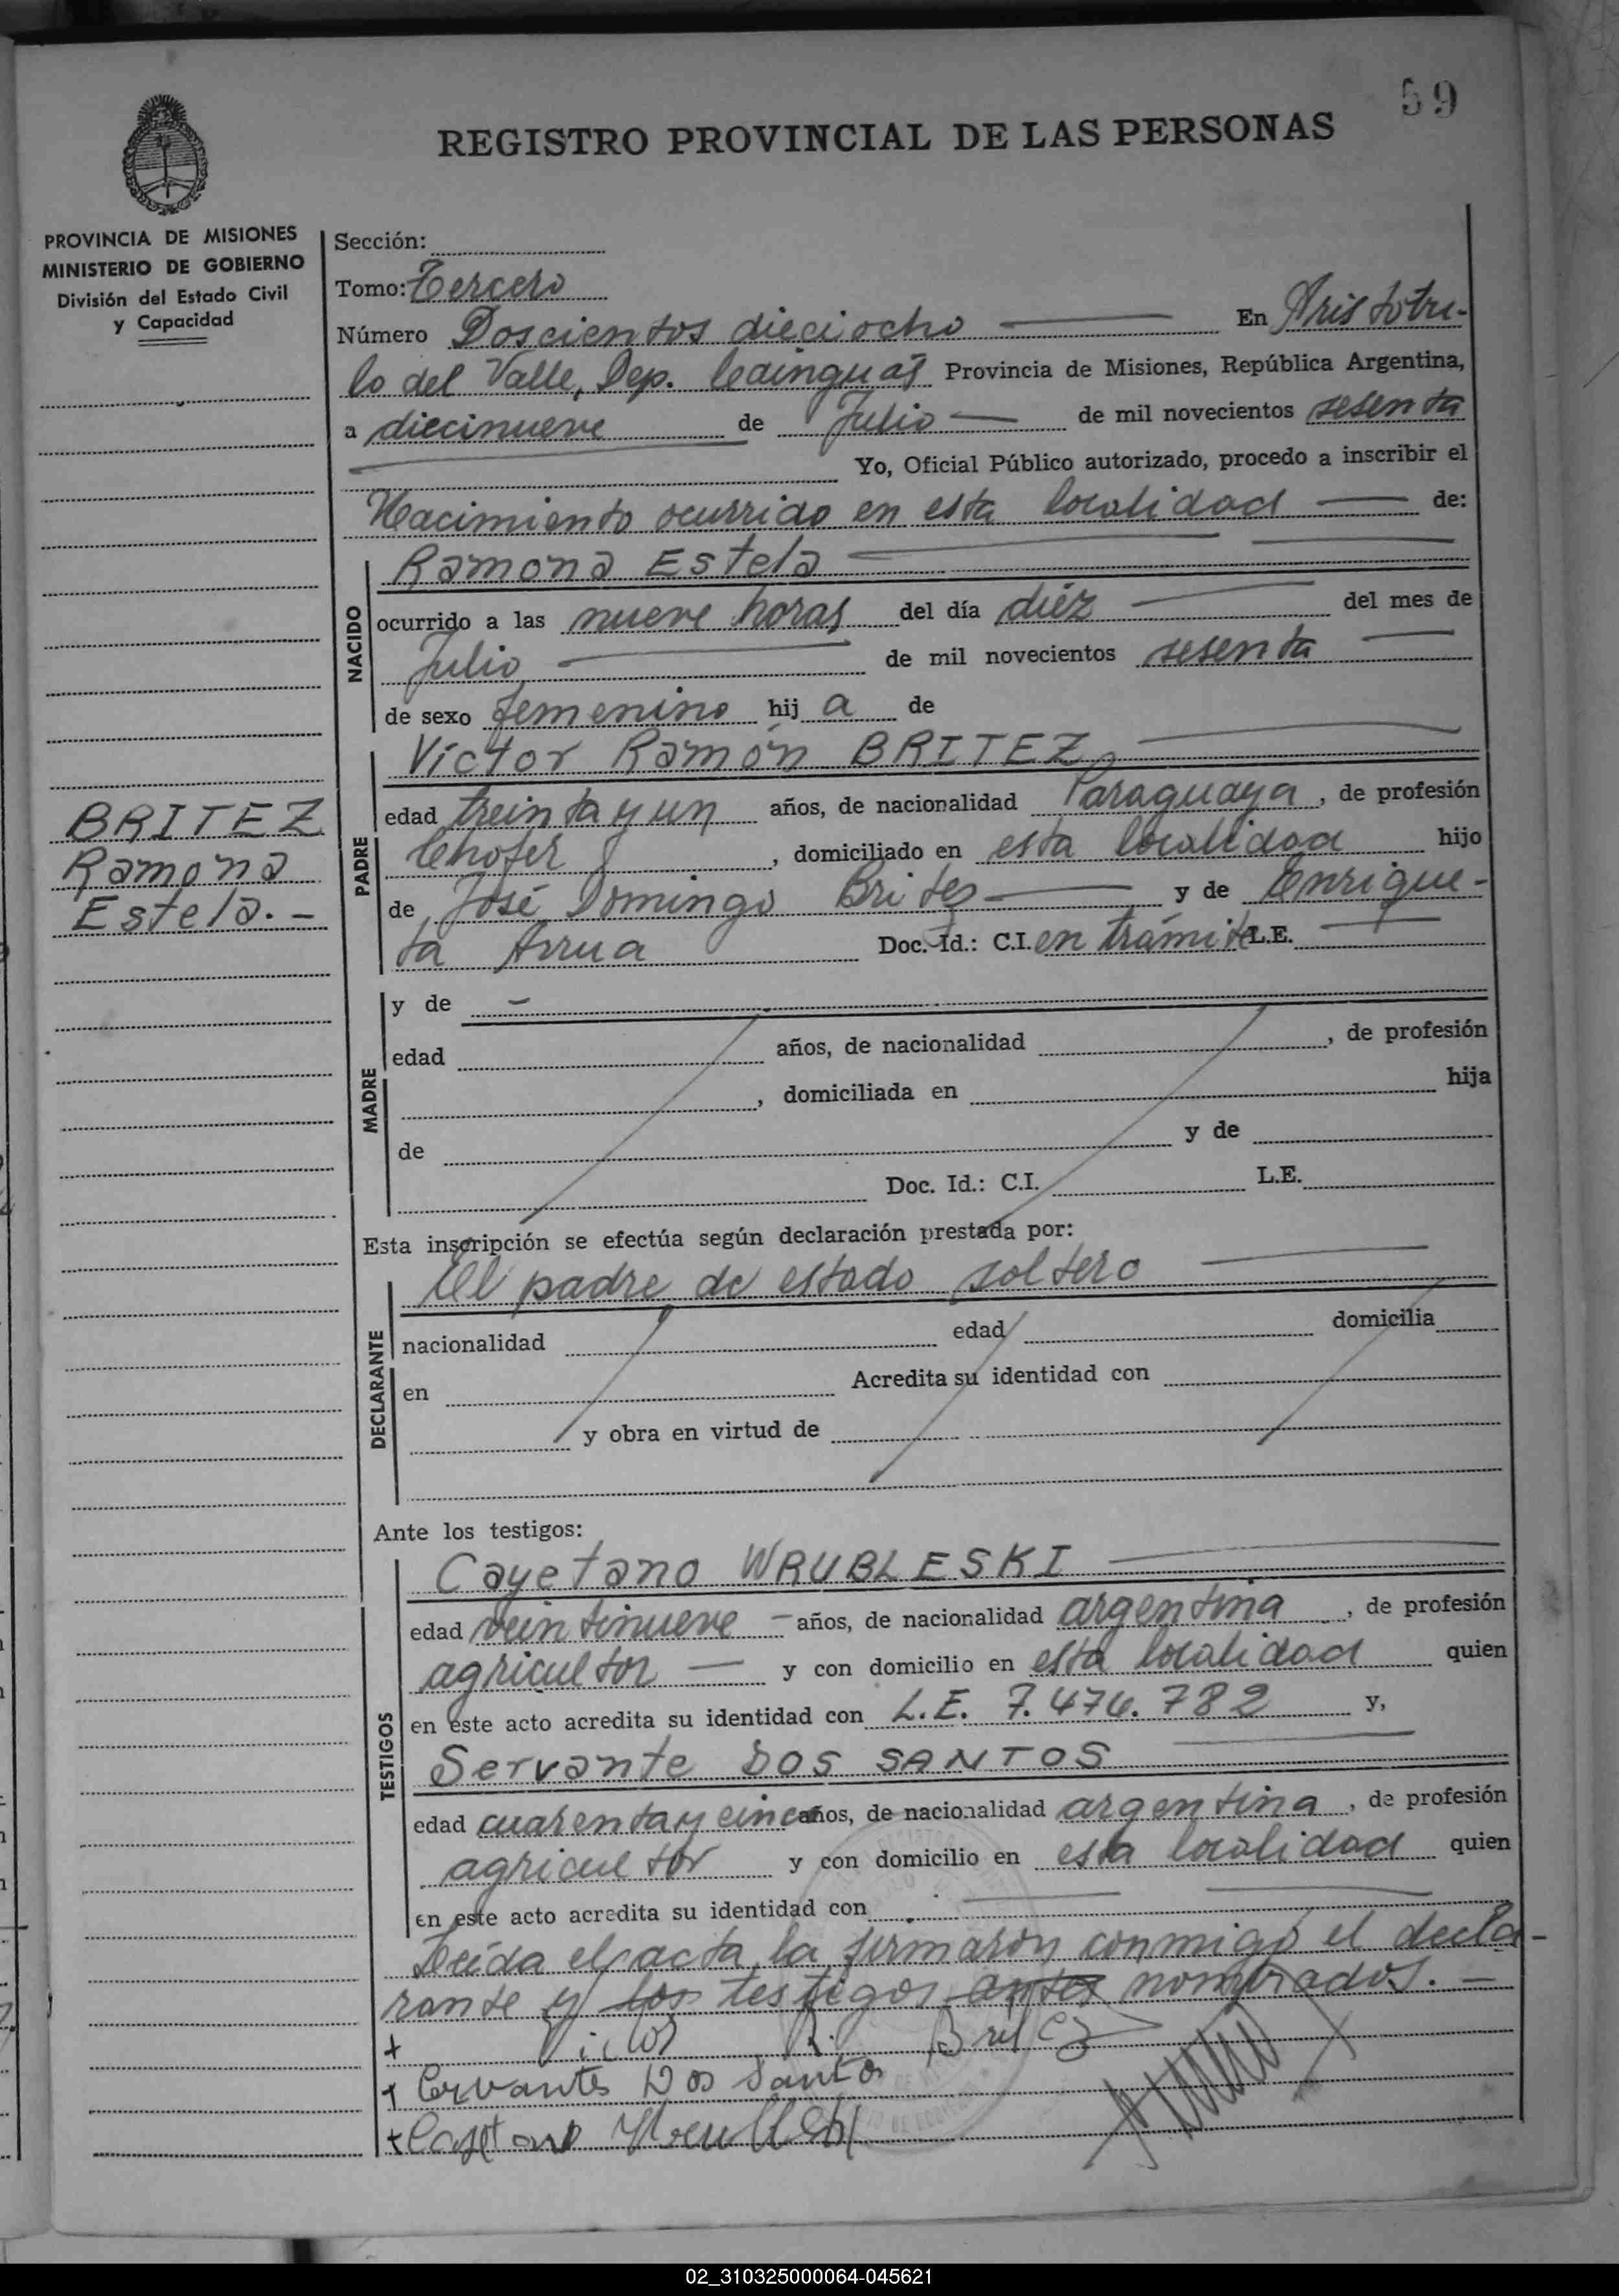 59
REGISTRO PROVINCIAL DE LAS PERSONAS
PROVINCIA DE MISIONES
MINISTERIO DE GOBIERNO
División del Estado Civil
y Capacidad
Sección:
Tomo: Tercero
Número Doscientos dieciocho En Aristotu-
lo del Valle, Dep. Cainguás Provincia de Misiones, República Argentina,
a diecinueve de Julio de mil novecientos sesenta
Yo, Oficial Público autorizado, procedo a inscribir el
Nacimiento ocurrido en esta localidad de:
NACIDO
Ramona Estela
ocurrido a las nueve horas del día diéz del mes de
Julio de mil novecientos sesenta
de sexo femenino hij a de
BRITEZ
Ramona
Estela.-
PADRE
Víctor Ramón BRITEZ
edad treinta y un años, de nacionalidad Paraguaya, de profesión
Chofer, domiciliado en esta localidad hijo
de José Domingo Britez y de Enrique-
ta Arrua Doc. Id.: C.I. en trámite L.E.
MADRE
y de -
edad años, de nacionalidad , de profesión
, domiciliada en hija
de y de
Doc. Id.: C.I. L.E.
Esta inscripción se efectúa según declaración prestada por:
DECLARANTE
El padre de estado soltero
nacionalidad edad domicilia
en Acredita su identidad con
y obra en virtud de
Ante los testigos:
TESTIGOS
Cayetano WRUBLESKI
edad veintinueve - años, de nacionalidad argentina, de profesión
agricultor - y con domicilio en esta localidad quien
en este acto acredita su identidad con L.E. 7.476.782 y,
Servante DOS SANTOS
edad cuarenta y cinco años, de nacionalidad argentina, de profesión
agricultor y con domicilio en esta localidad quien
en este acto acredita su identidad con
Leída el acta, la firmarón conmigo el decla-
rante y los testigos antes nombrados.-
+ Victor R. Britez
+ Cervantes Dos Santos
+ Cayetano
02_310325000064-045621